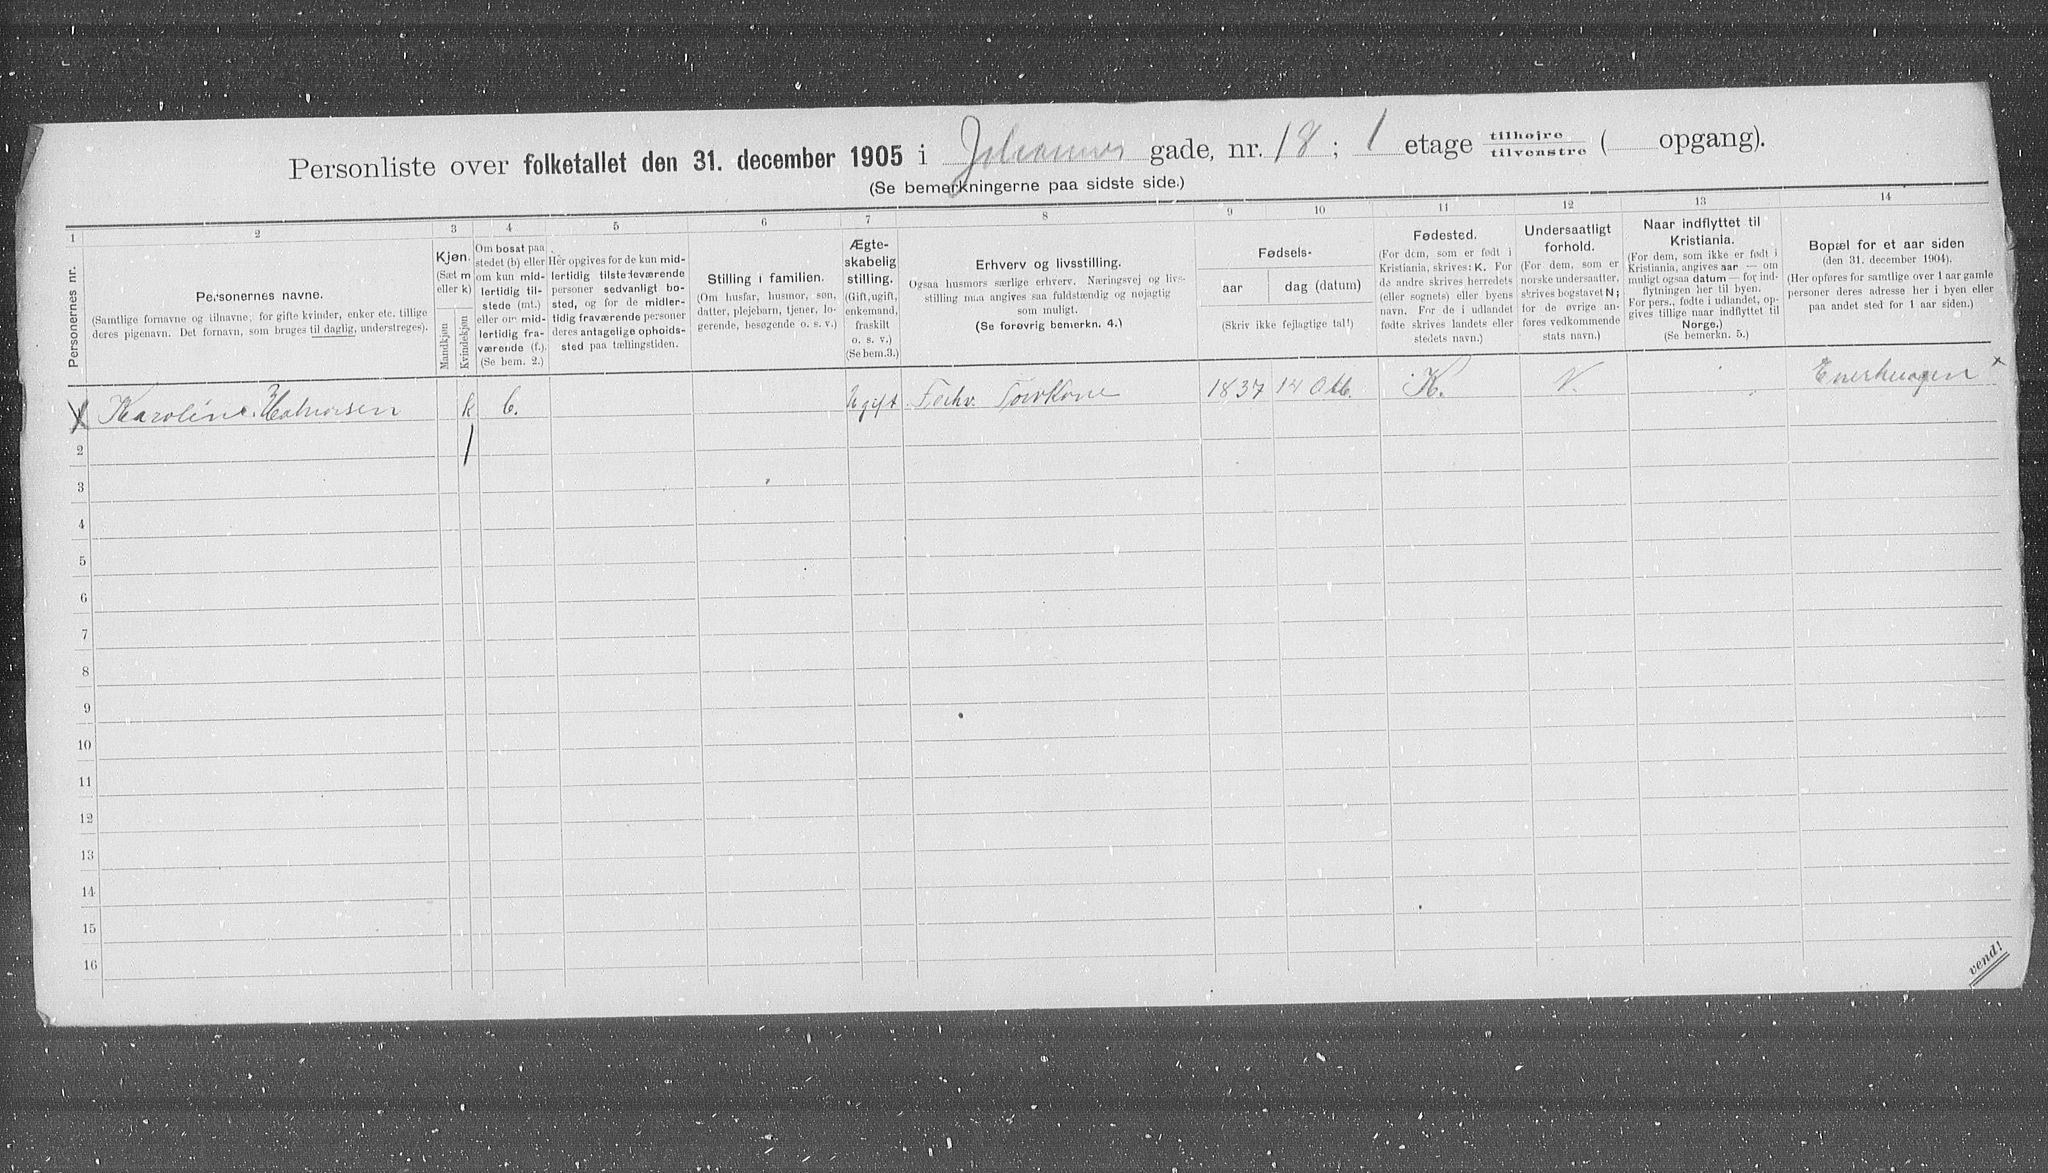 Personliste over folketallet den 31. december 1905 i Johannes gade, nr. 18; 1 etage tilhøjre tilvenstre ( opgang).
(Se bemerkningerne paa sidste side.)
1 2 3 4 5 6 7 8 9 10 11 12 13 14
Personernes nr.
Personernes navne.
(Samtlige fornavne og tilnavne; for gifte kvinder, enker etc. tillige
deres pigenavn. Det fornavn, som bruges til daglig, understreges).
Kjøn.
(Sæt m
eller k)
Mandkjøn
Kvindekjøn
Om bosat paa
stedet (b) eller
om kun mid-
lertidig til-
stede (mt.)
eller om mid-
lertidig fra-
værende (f.).
(Se bem. 2.)
Her opgives for de kun mid-
lertidig tilstedeværende
personer sedvanligt bo-
sted, og for de midler-
tidig fraværende personer
deres antagelige opholds-
sted paa tællingstiden.
Stilling i familien.
(Om husfar, husmor, søn,
datter, plejebarn, tjener, lo-
gerende, besøgende o. s. v.)
Ægte-
skabelig
stilling.
(Gift, ugift,
enkemand,
fraskilt
o. s. v.)
(Se bem.3.)
Erhverv og livsstilling.
Ogsaa husmors særlige erhverv. Næringsvej og livs-
stilling maa angives saa fuldstændig og nøjagtig
som muligt.
(Se forøvrig bemerkn. 4.)
Fødsels-
aar
dag (datum)
(Skriv ikke fejlagtige tal!)
Fødested.
(For dem, som er født i
Kristiania, skrives: K. For
de andre skrives herredets
(eller sognets) eller byens
navn. For de i udlandet
fødte skrives landets eller
stedets navn.)
Undersaatligt
forhold.
(For dem, som er
norske undersaatter,
skrives bogstavet N;
for de øvrige an-
føres vedkommende
stats navn.)
Naar indflyttet til
Kristiania.
(For dem, som ikke er født i
Kristiania, angives aar — om
muligt ogsaa datum — for ind-
flytningen her til byen.
For pers., fødte i udlandet, op-
gives tillige naar indflyttet til
Norge.)
(Se bemerkn. 5.)
Bopæl for et aar siden
(den 31. december 1904).
(Her opføres for samtlige over 1 aar gamle
personer deres adresse her i byen eller
paa andet sted for 1 aar siden.)
Karoline Halvorsen k b. Ugift Forhv. Torvkone 1837 14 Okb. K. N. Enerhaugen
2 1
3
4
5
6
7
8
9
10
11
12
13
14
15
16
vend!